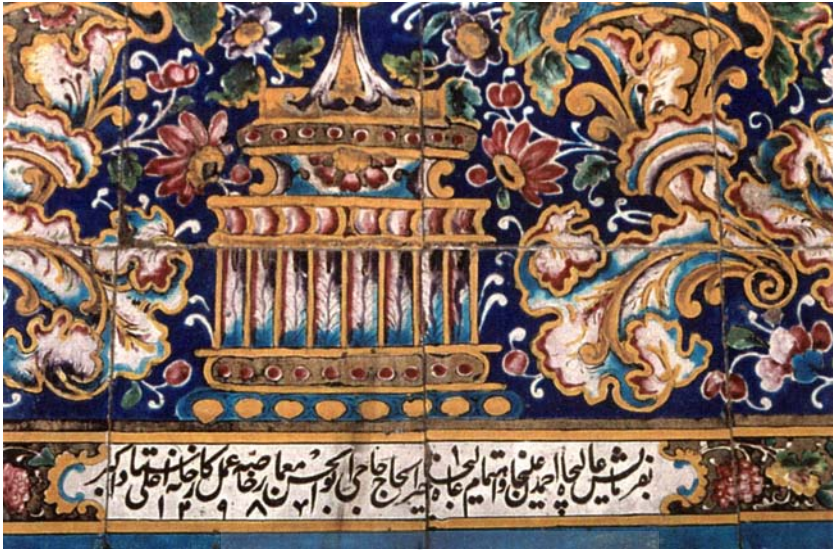 بفرمایش عالیجاه احمد علیخان و اهتمام عالیجاه خیر الحاج حاجی ابوالحسن معمار خاصه عمل کارخانه اقل استاد اکبر
۱۲۹۸